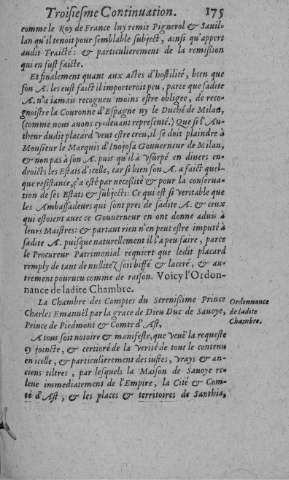 Troisiesme Continuation. 175
comme le Roy de France luy remit Pignerol & Sauil-
lan qu'il tenoit pour semblable subject, ainsi qu'appert
audit Traicté: & particulierement de la remission
qui en fust faicte.
Et finalement quant aux actes d'hostilité, bien que
son A. les eust faict il importeroit peu, parce que sadite
A. n'a iamais recogneu moins estre obligee, de reco-
gnoistre la Couronne d'Espagne ny le Duché de Milan,
(comme nous auons cy-deuant representé.) Que si l'Au-
theur dudit placard veut estre creu, il se doit plaindre à
Monsieur le Marquis d'Inoyosa Gouuerneur de Milan,
& non pas à son A. puis qu'il a vsurpé en diuers en-
droicts les Estats d'icelle, car si bien son A. a faict quel-
que resistance, ç'a esté par necesité & pour la conserua-
tion de ses Estats & subjects: Ce qui est si veritable que
les Ambassadeurs qui sont pres de sadite A. & ceux
qui estoient auec ce Gouuerneur en ont donné aduis à
leurs Maistres: & partant rien n'en peut estre imputé à
sadite A. puisque naturellement il l'a peu faire, parce
le Procureur Patrimonial requiert que ledit placard
remply de tant de nullitez soit biffé & laceré, & au-
trement pourueu comme de raison. Voicy l'Ordon-
nance de ladite Chambre.
La Chambre des Comptes du Serenissime Prince
Charles Emanuel par la grace de Dieu Duc de Sauoye,
Prince de Piedmont & Comte d'Ast,
Ordonnance
de ladite
Chambre.
A tous soit notoire & manifeste, que veuë la requeste
cy joincte, & certioré de la verité de tout le contenu
en icelle, & particulierement des iustes, vrays & an-
ciens tiltres, par lesquels la Maison de Sauoye re-
leue immediatement de l'Empire, la Cité & Com-
té d'Ast, & les places & territoires de Santhia,